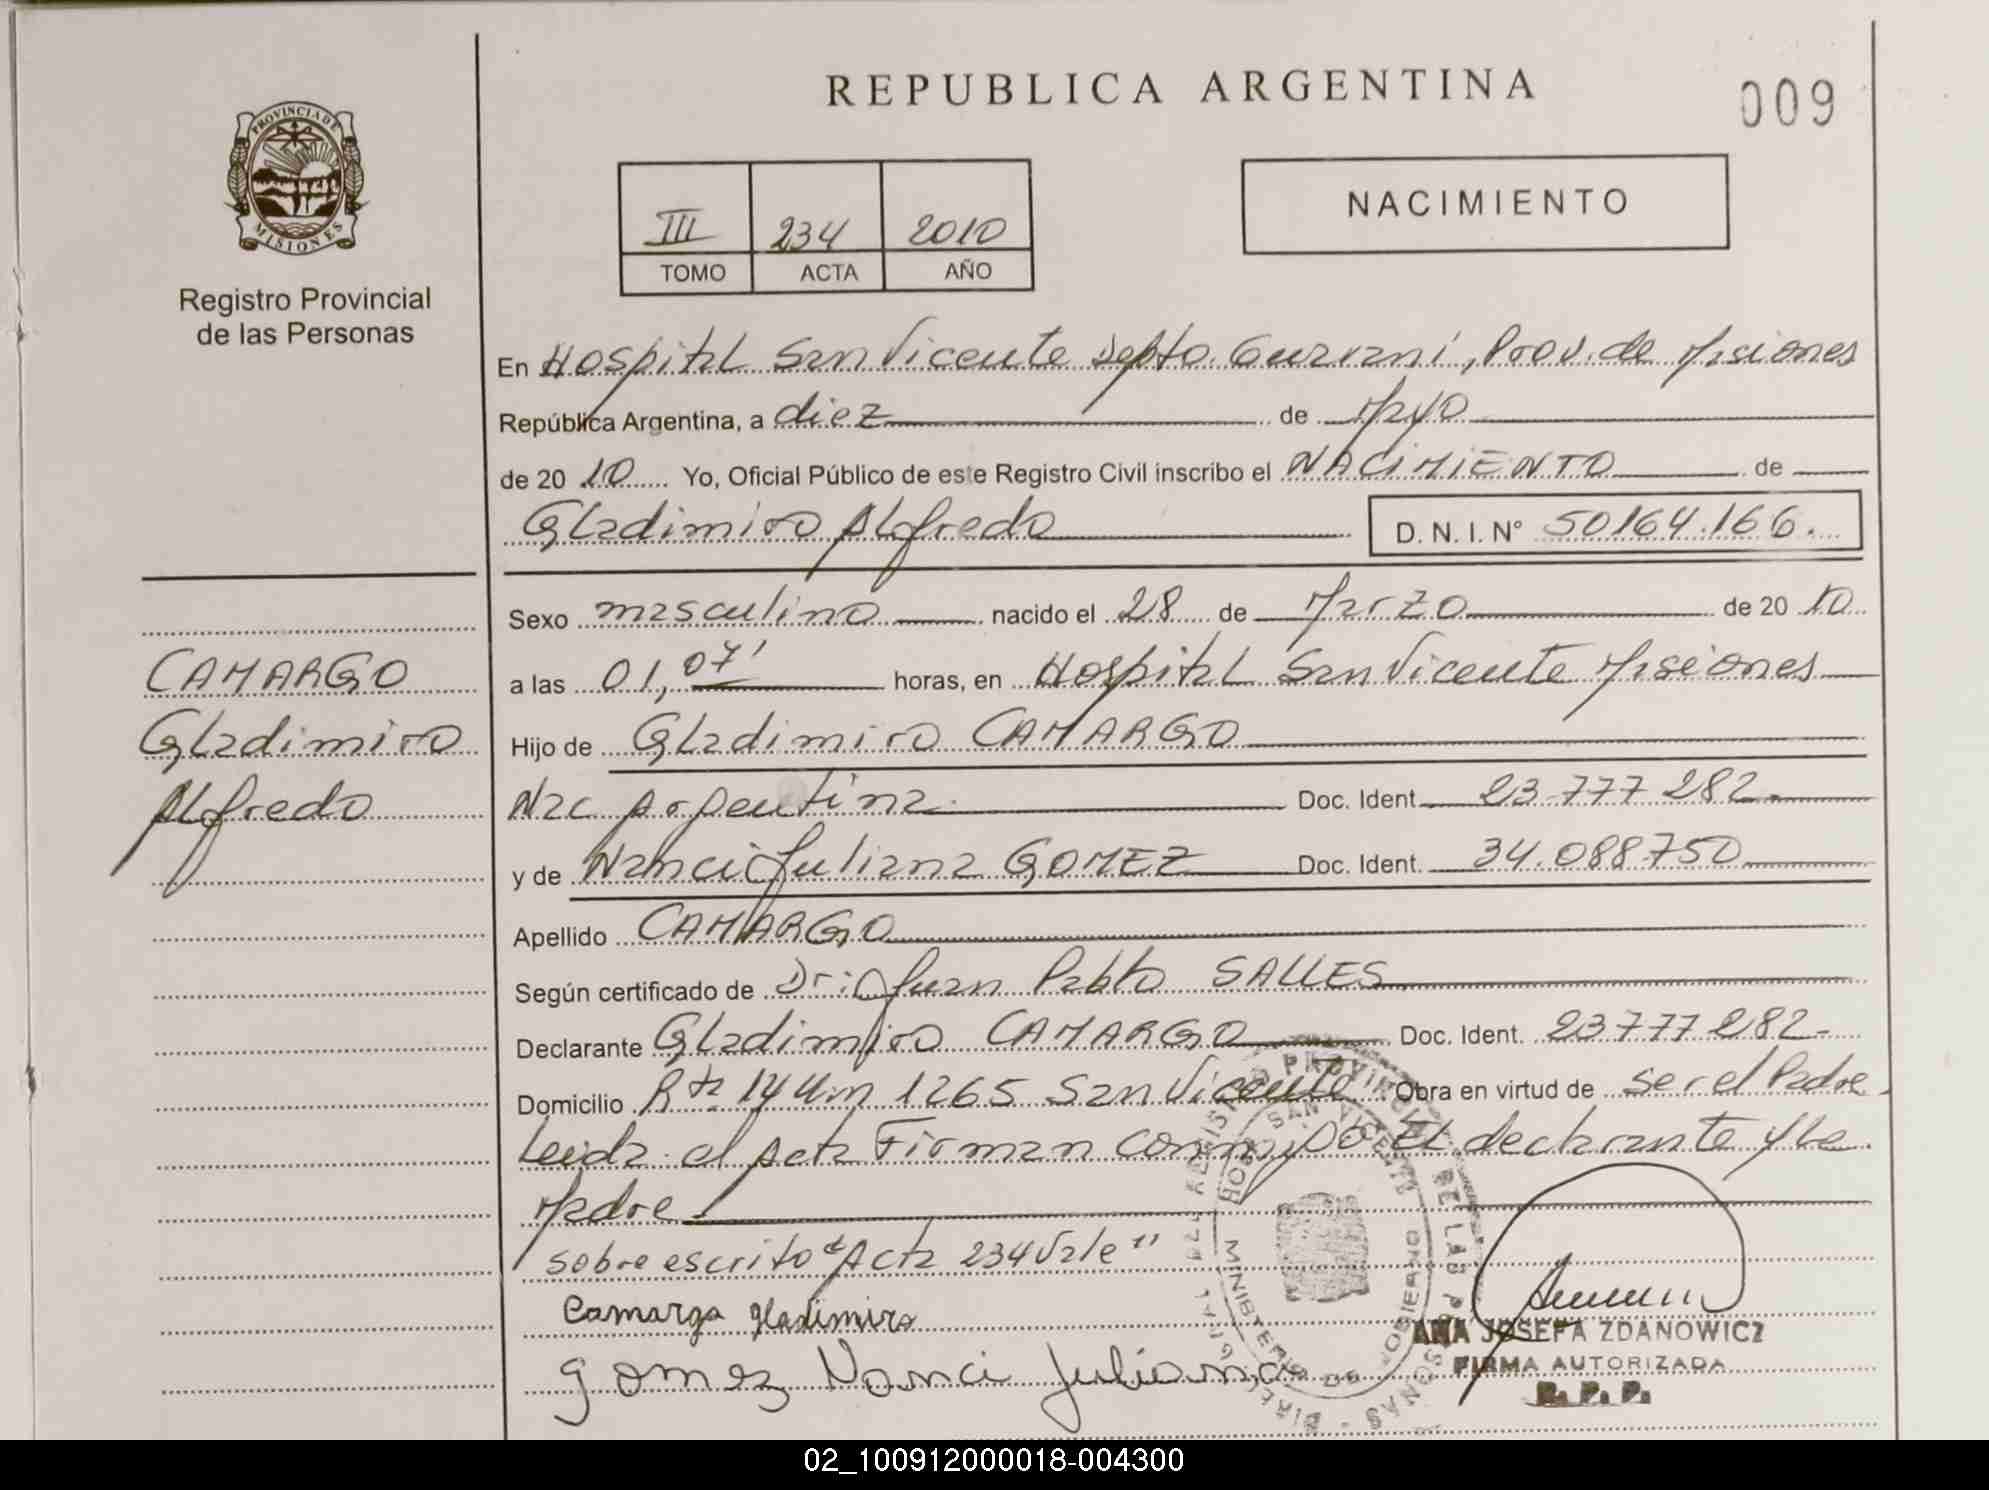 REPUBLICA ARGENTINA
009
PROVINCIA DE
MISIONES
Registro Provincial
de las Personas
III 234 2010
TOMO ACTA AÑO
NACIMIENTO
En Hospital San Vicente Depto. Guarani, Prov. de Misiones
República Argentina, a diez de Mayo
de 20 10 Yo, Oficial Público de este Registro Civil inscribo el NACIMIENTO de
Gladimiro Alfredo D. N. I. N° 50164.166.
Sexo masculino nacido el 28 de Marzo de 20 10
a las 01,07' horas, en Hospital San Vicente Misiones
Hijo de Gladimiro CAMARGO
Nac Argentina Doc. Ident. 23.777.282
y de Nanci Juliana GOMEZ Doc. Ident. 34.088.750
Apellido CAMARGO
Según certificado de Dr: Juan Pablo SALLES
Declarante Gladimiro CAMARGO Doc. Ident. 23777282
Domicilio Rta. 14 Km 1265 San Vicente Obra en virtud de ser el Padre
Leida el Acta Firman conmigo El declarante y la
Madre
sobre escrito "Acta 234 Vale"
Camargo Gladimiro
Gomez Nanci Juliana
CAMARGO
Gladimiro
Alfredo
REGISTRO PROVINCIAL DE LAS PERSONAS
HOSP. SAN VICENTE
MINISTERIO DE GOBIERNO
ANA JOSEFA ZDANOWICZ
FIRMA AUTORIZADA
R. P. P.
02_100912000018-004300